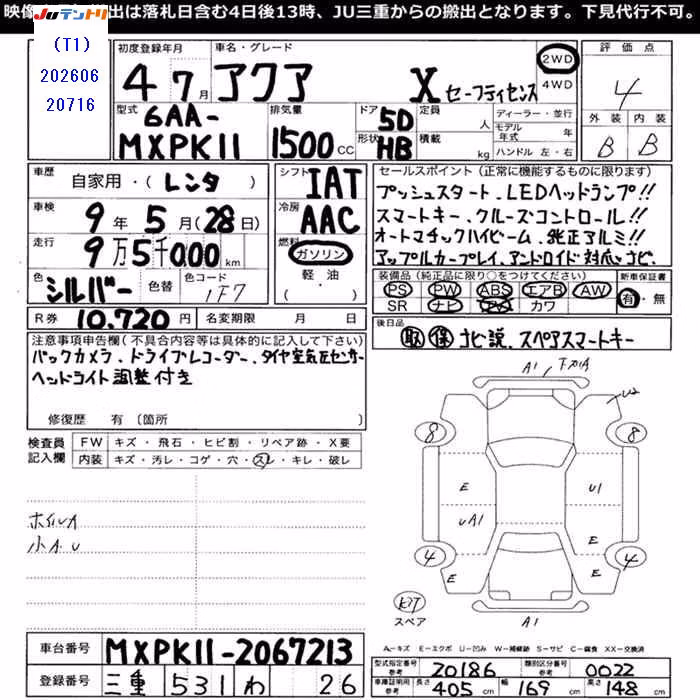 映像 出は落札日含む4日後13時、JU三重からの搬出となります。下見代行不可。
JUテントリ
(T1)
202606
20716
初度登録年月 車名・グレード 2WD 4WD 評価点
4 7月 アクア X セーフティセンス 4
型式 排気量 ドア 定員 人 ディーラー・並行 外装 内装
6AA-MXPK11 1500cc 5D 形状 HB 積載 kg モデル年式 年 B B
ハンドル 左・右
車歴 自家用・(レンタ) シフト IAT
車検 9年5月(28日) 冷房 AAC
走行 9万5千000km 燃料 ガソリン 軽・油 ( )
色 シルバー 色替 色コード 1F7
R券 10,720円 名変期限 月 日
セールスポイント(正常に機能するものに限ります)
プッシュスタート、LEDヘッドランプ!!
スマートキー、クルーズコントロール!!
オートマチックハイビーム、純正アルミ!!
アップルカープレイ、アンドロイド対応ナビ
装備品(純正品に限り○をつけてください) 新車保証書
PS PW ABS エアB AW 有・無
SR ナビ カワ
後日品
取 保 ナビ説、スペアスマートキー
注意事項申告欄(不具合内容等は具体的に記入して下さい)
バックカメラ、ドライブレコーダー、タイヤ空気圧センサー
ヘッドライト調整付き
修復歴 有〔箇所 〕
検査員記入欄 FW キズ・飛石・ヒビ割・リペア跡・X要
内装 キズ・汚レ・コゲ・穴・スレ・キレ・破レ
ホイルA
小A.U
A1 下カリA
U2
8 8
E U1
UA1 E
4 4
E E
スペア
A1
A─キズ E─エクボ U─凹み W─補修跡 S─サビ C─腐食 XX─交換済
車台番号 MXPK11-2067213
登録番号 三重 531 わ 26
型式指定番号 参考 20186 類別区分番号 参考 0022
車庫証明用 参考 長さ 405cm 幅 169cm 高さ 148cm